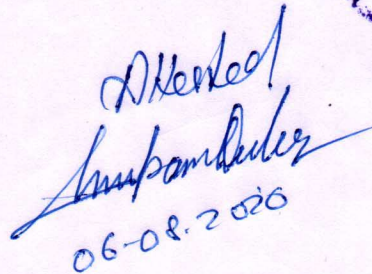 Attested
Anupam Dubey
06-08-2020